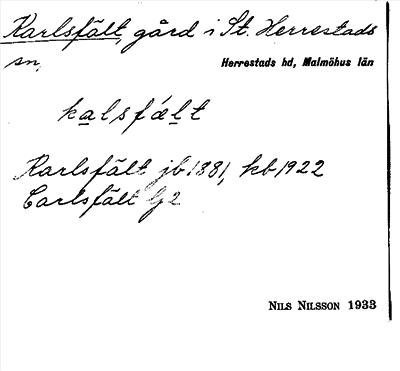 Karlsfält, gård i St. Herrestads
sn.
Herrestads hd, Malmöhus län
kalsfælt
Karlsfält jb 1881, kb 1922
Carlsfält Gj 2
NILS NILSSON 1933